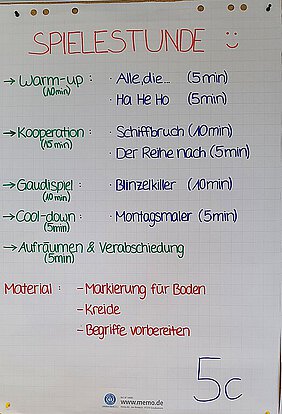 SPIELESTUNDE
→ Warm-up : · Alle, die... (5 min)
(10 min) · Ha He Ho (5 min)
→ Kooperation : · Schiffbruch (10 min)
(15 min) · Der Reihe nach (5 min)
→ Gaudispiel : · Blinzelkiller (10 min)
(10 min)
→ Cool-down : · Montagsmaler (5 min)
(5 min)
→ Aufräumen & Verabschiedung
(5 min)
Material : - Markierung für Boden
- Kreide
- Begriffe vorbereiten
5c
www.memo.de